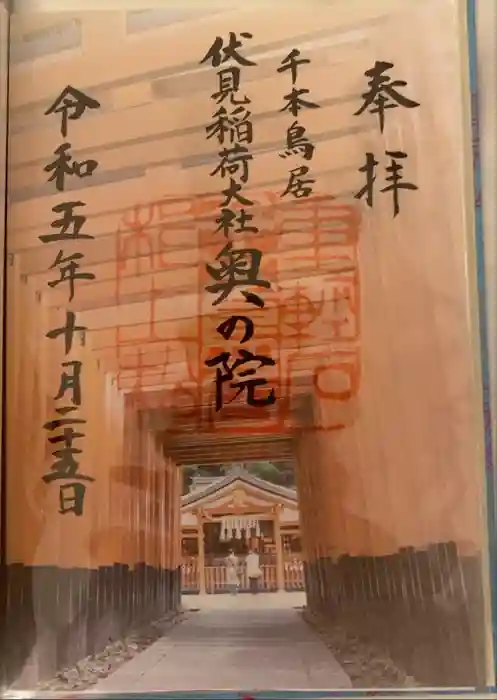 奉拝
千本鳥居
伏見稲荷大社奥の院
令和五年十月二十五日